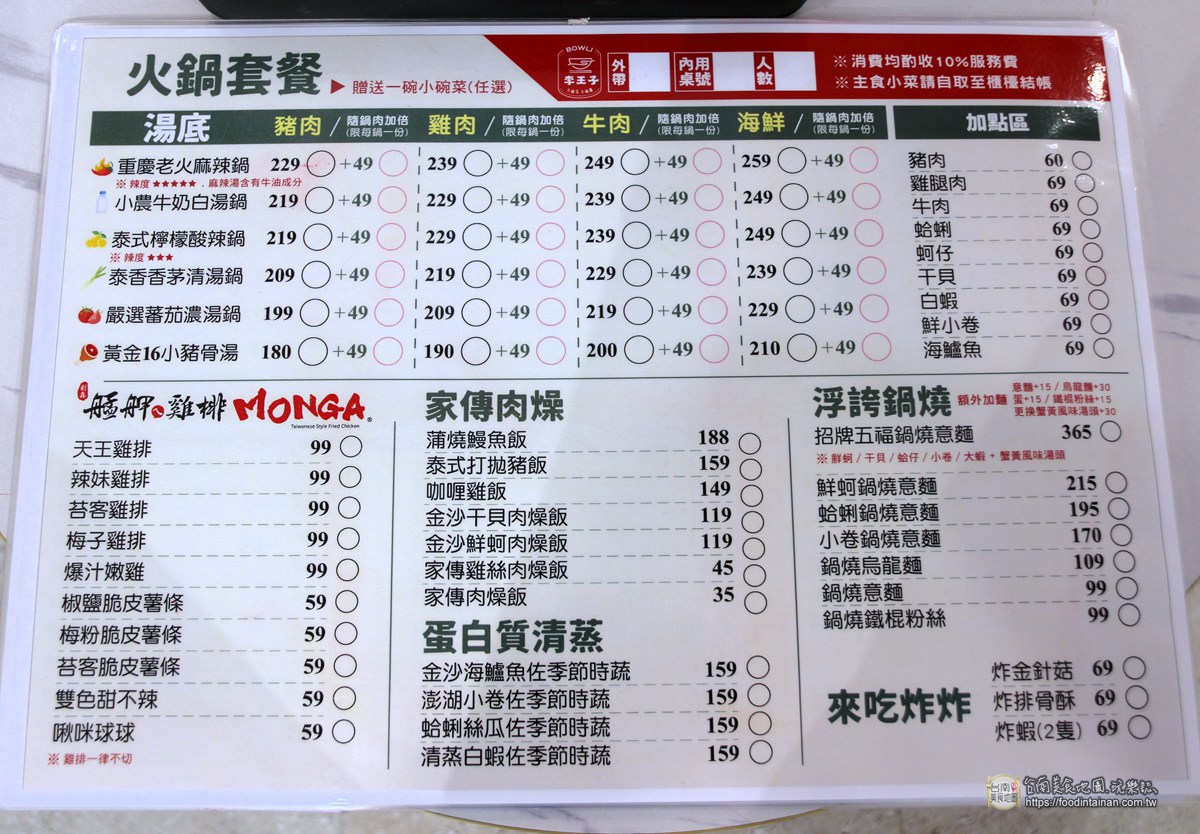 火鍋套餐 ▶ 贈送一碗小碗菜(任選)
BOWLI 李王子 外帶 內用桌號 人數
※ 消費均酌收10%服務費
※ 主食小菜請自取至櫃檯結帳
湯底 豬肉 / 隨鍋肉加倍(限每鍋一份) 雞肉 / 隨鍋肉加倍(限每鍋一份) 牛肉 / 隨鍋肉加倍(限每鍋一份) 海鮮 / 隨鍋肉加倍(限每鍋一份)
重慶老火麻辣鍋 229 +49 239 +49 249 +49 259 +49
※ 辣度★★★★★．麻辣湯含有牛油成分
小農牛奶白湯鍋 219 +49 229 +49 239 +49 249 +49
泰式檸檬酸辣鍋 219 +49 229 +49 239 +49 249 +49
※ 辣度★★★
泰香香茅清湯鍋 209 +49 219 +49 229 +49 239 +49
嚴選蕃茄濃湯鍋 199 +49 209 +49 219 +49 229 +49
黃金16小豬骨湯 180 +49 190 +49 200 +49 210 +49
加點區
豬肉 60
雞腿肉 69
牛肉 69
蛤蜊 69
蚵仔 69
干貝 69
白蝦 69
鮮小卷 69
海鱸魚 69
艋舺雞排 MONGA®
Taiwanese Style Fried Chicken
天王雞排 99
辣妹雞排 99
苔客雞排 99
梅子雞排 99
爆汁嫩雞 99
椒鹽脆皮薯條 59
梅粉脆皮薯條 59
苔客脆皮薯條 59
雙色甜不辣 59
啾咪球球 59
※ 雞排一律不切
家傳肉燥
蒲燒鰻魚飯 188
泰式打拋豬飯 159
咖喱雞飯 149
金沙干貝肉燥飯 119
金沙鮮蚵肉燥飯 119
家傳雞絲肉燥飯 45
家傳肉燥飯 35
蛋白質清蒸
金沙海鱸魚佐季節時蔬 159
澎湖小卷佐季節時蔬 159
蛤蜊絲瓜佐季節時蔬 159
清蒸白蝦佐季節時蔬 159
浮誇鍋燒 額外加麵
意麵+15 / 烏龍麵+30
蛋+15 / 鐵棍粉絲+15
更換蟹黃風味湯頭+30
招牌五福鍋燒意麵 365
※ 鮮蚵 / 干貝 / 蛤仔 / 小卷 / 大蝦 + 蟹黃風味湯頭
鮮蚵鍋燒意麵 215
蛤蜊鍋燒意麵 195
小卷鍋燒意麵 170
鍋燒烏龍麵 109
鍋燒意麵 99
鍋燒鐵棍粉絲 99
來吃炸炸
炸金針菇 69
炸排骨酥 69
炸蝦(2隻) 69
台南美食地圖 玩樂誌
https://foodintainan.com.tw